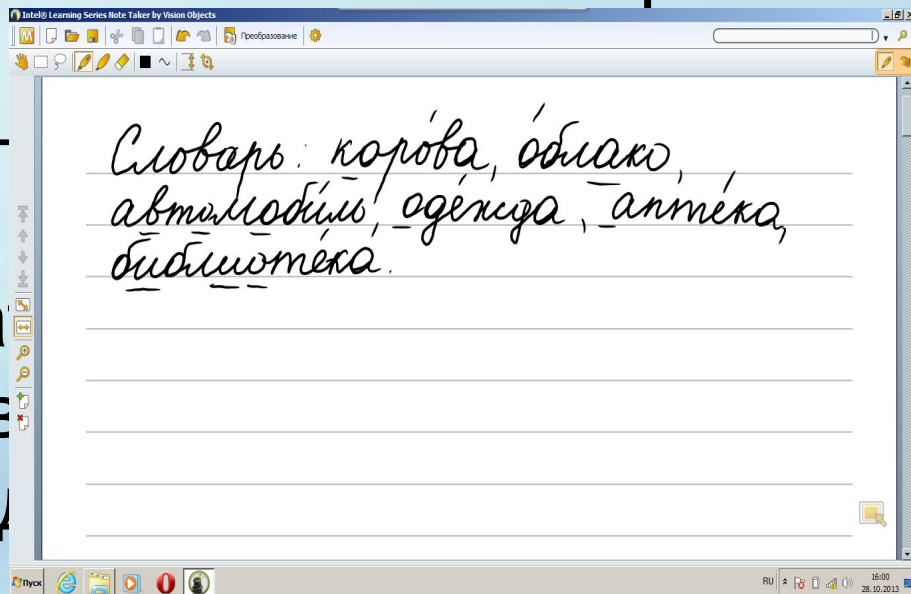 Intel® Learning Series Note Taker by Vision Objects
Преобразование
Словарь: коро́ва, о́блако,
автомоби́ль, оде́жда, апте́ка,
библиоте́ка.
Пуск
RU
16:00
28.10.2013